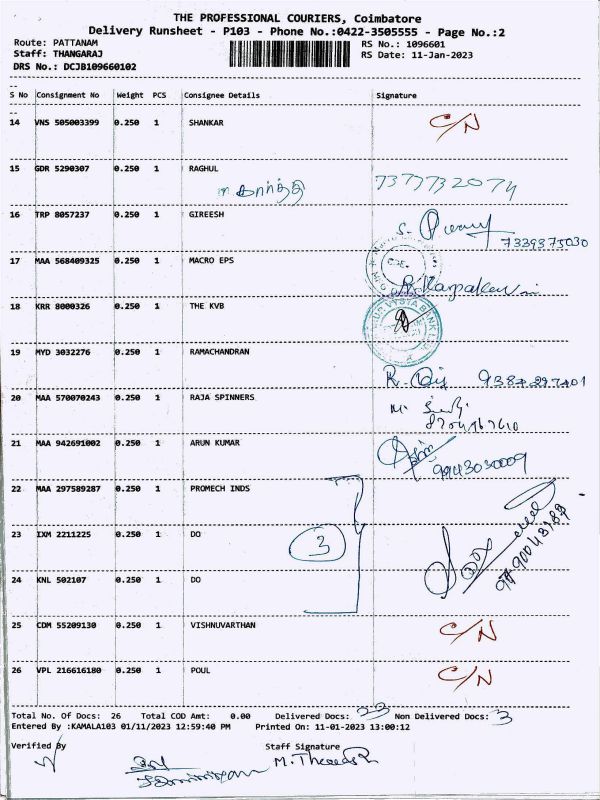 THE PROFESSIONAL COURIERS, Coimbatore
Delivery Runsheet - P103 - Phone No.:0422-3505555 - Page No.:2
Route: PATTANAM RS No.: 1096601
Staff: THANGARAJ RS Date: 11-Jan-2023
DRS No.: DCJB109660102
S No Consignment No Weight PCS Consignee Details Signature
14 VNS 505003399 0.250 1 SHANKAR C/N
15 GDR 5290307 0.250 1 RAGHUL
7377732074
16 TRP 8057237 0.250 1 GIREESH
7339375030
17 MAA 568409325 0.250 1 MACRO EPS
18 KRR 8000326 0.250 1 THE KVB
19 MYD 3032276 0.250 1 RAMACHANDRAN
20 MAA 570070243 0.250 1 RAJA SPINNERS
21 MAA 942691002 0.250 1 ARUN KUMAR
9943030009
22 MAA 297589287 0.250 1 PROMECH INDS
23 IXM 2211225 0.250 1 DO
3
24 KNL 502107 0.250 1 DO
25 CDM 55209130 0.250 1 VISHNUVARTHAN C/N
26 VPL 216616180 0.250 1 POUL C/N
Total No. Of Docs: 26 Total COD Amt: 0.00 Delivered Docs: 23 Non Delivered Docs: 3
Entered By :KAMALA103 01/11/2023 12:59:40 PM Printed On: 11-01-2023 13:00:12
Verified By Staff Signature